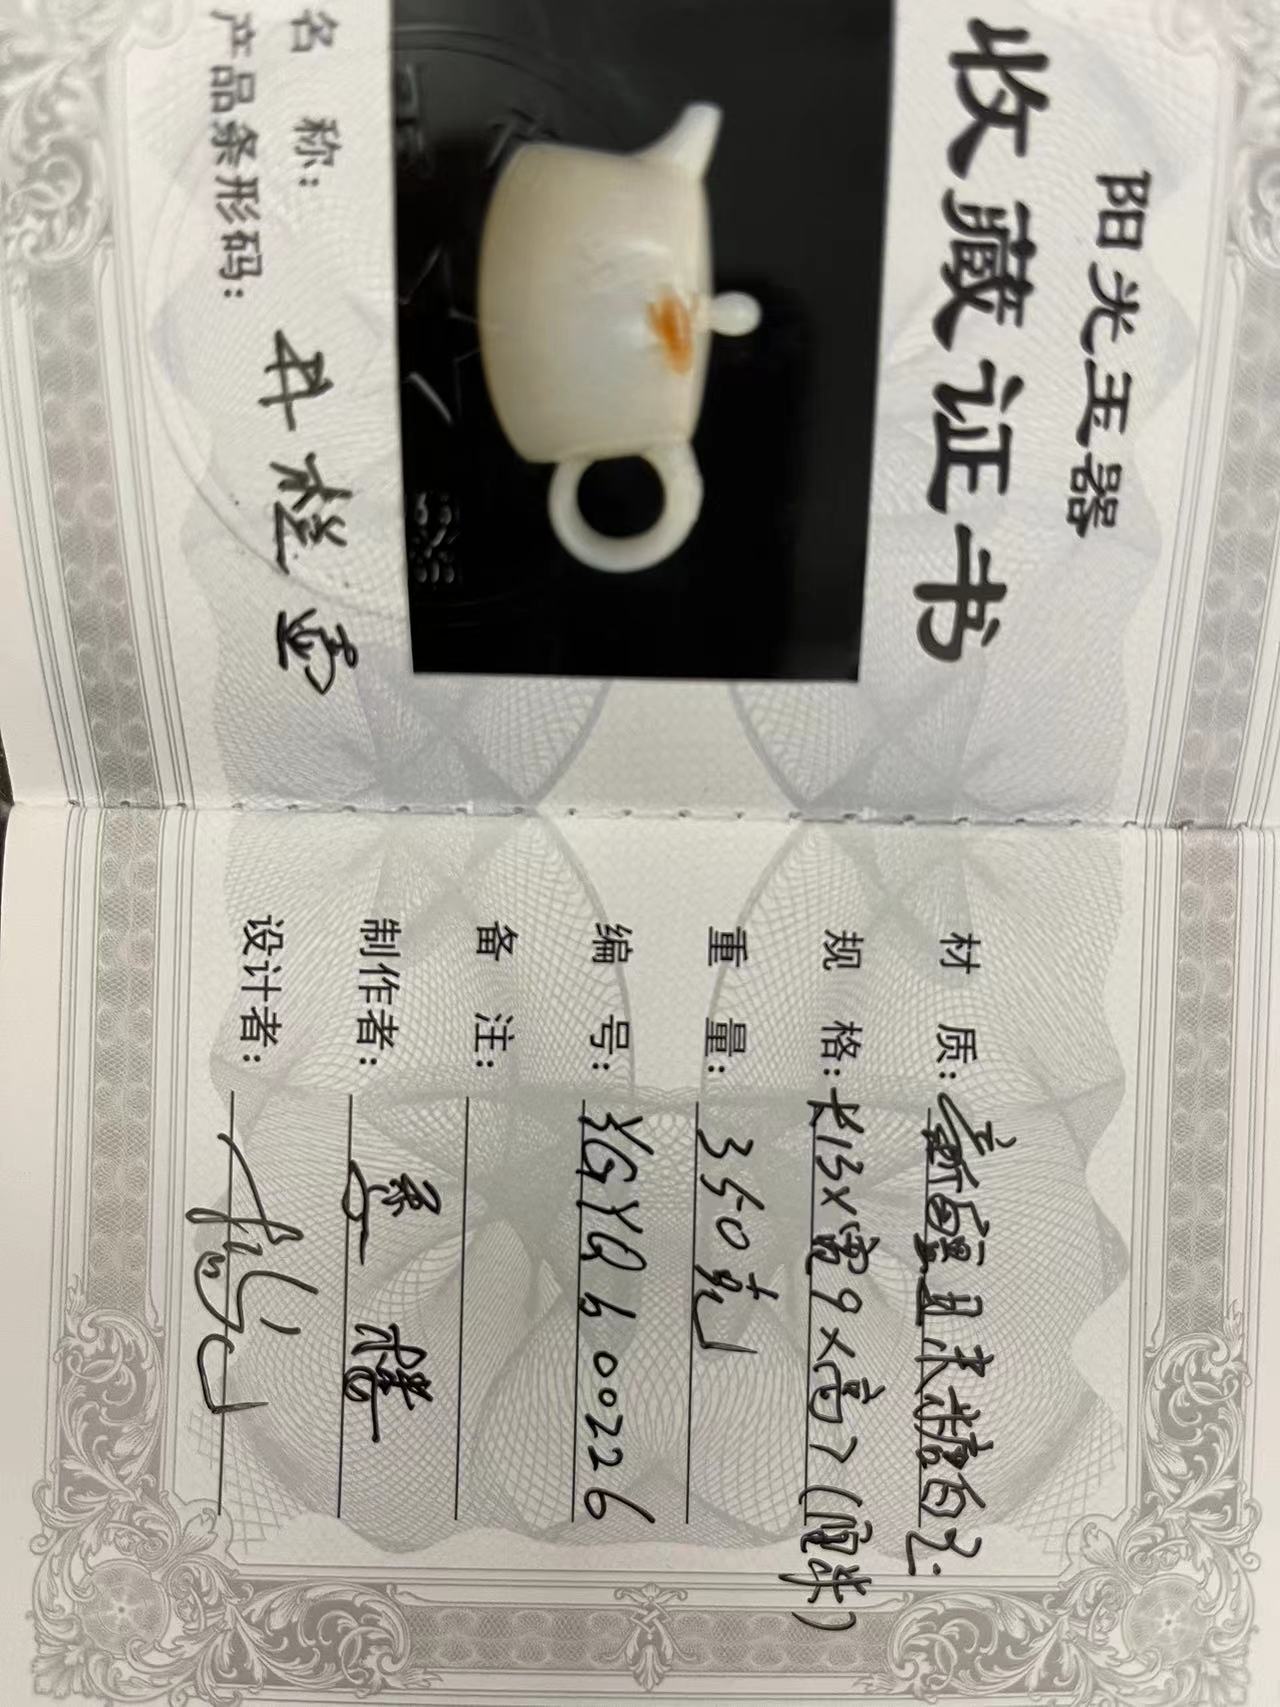 阳光玉器
收藏证书
名 称: 井栏壶
产品条形码:
材 质: 新疆且末糖白玉
规 格: 长13×宽9×高7(厘米)
重 量: 350克
编 号: YGYQ 60026
备 注:
制作者:
设计者: